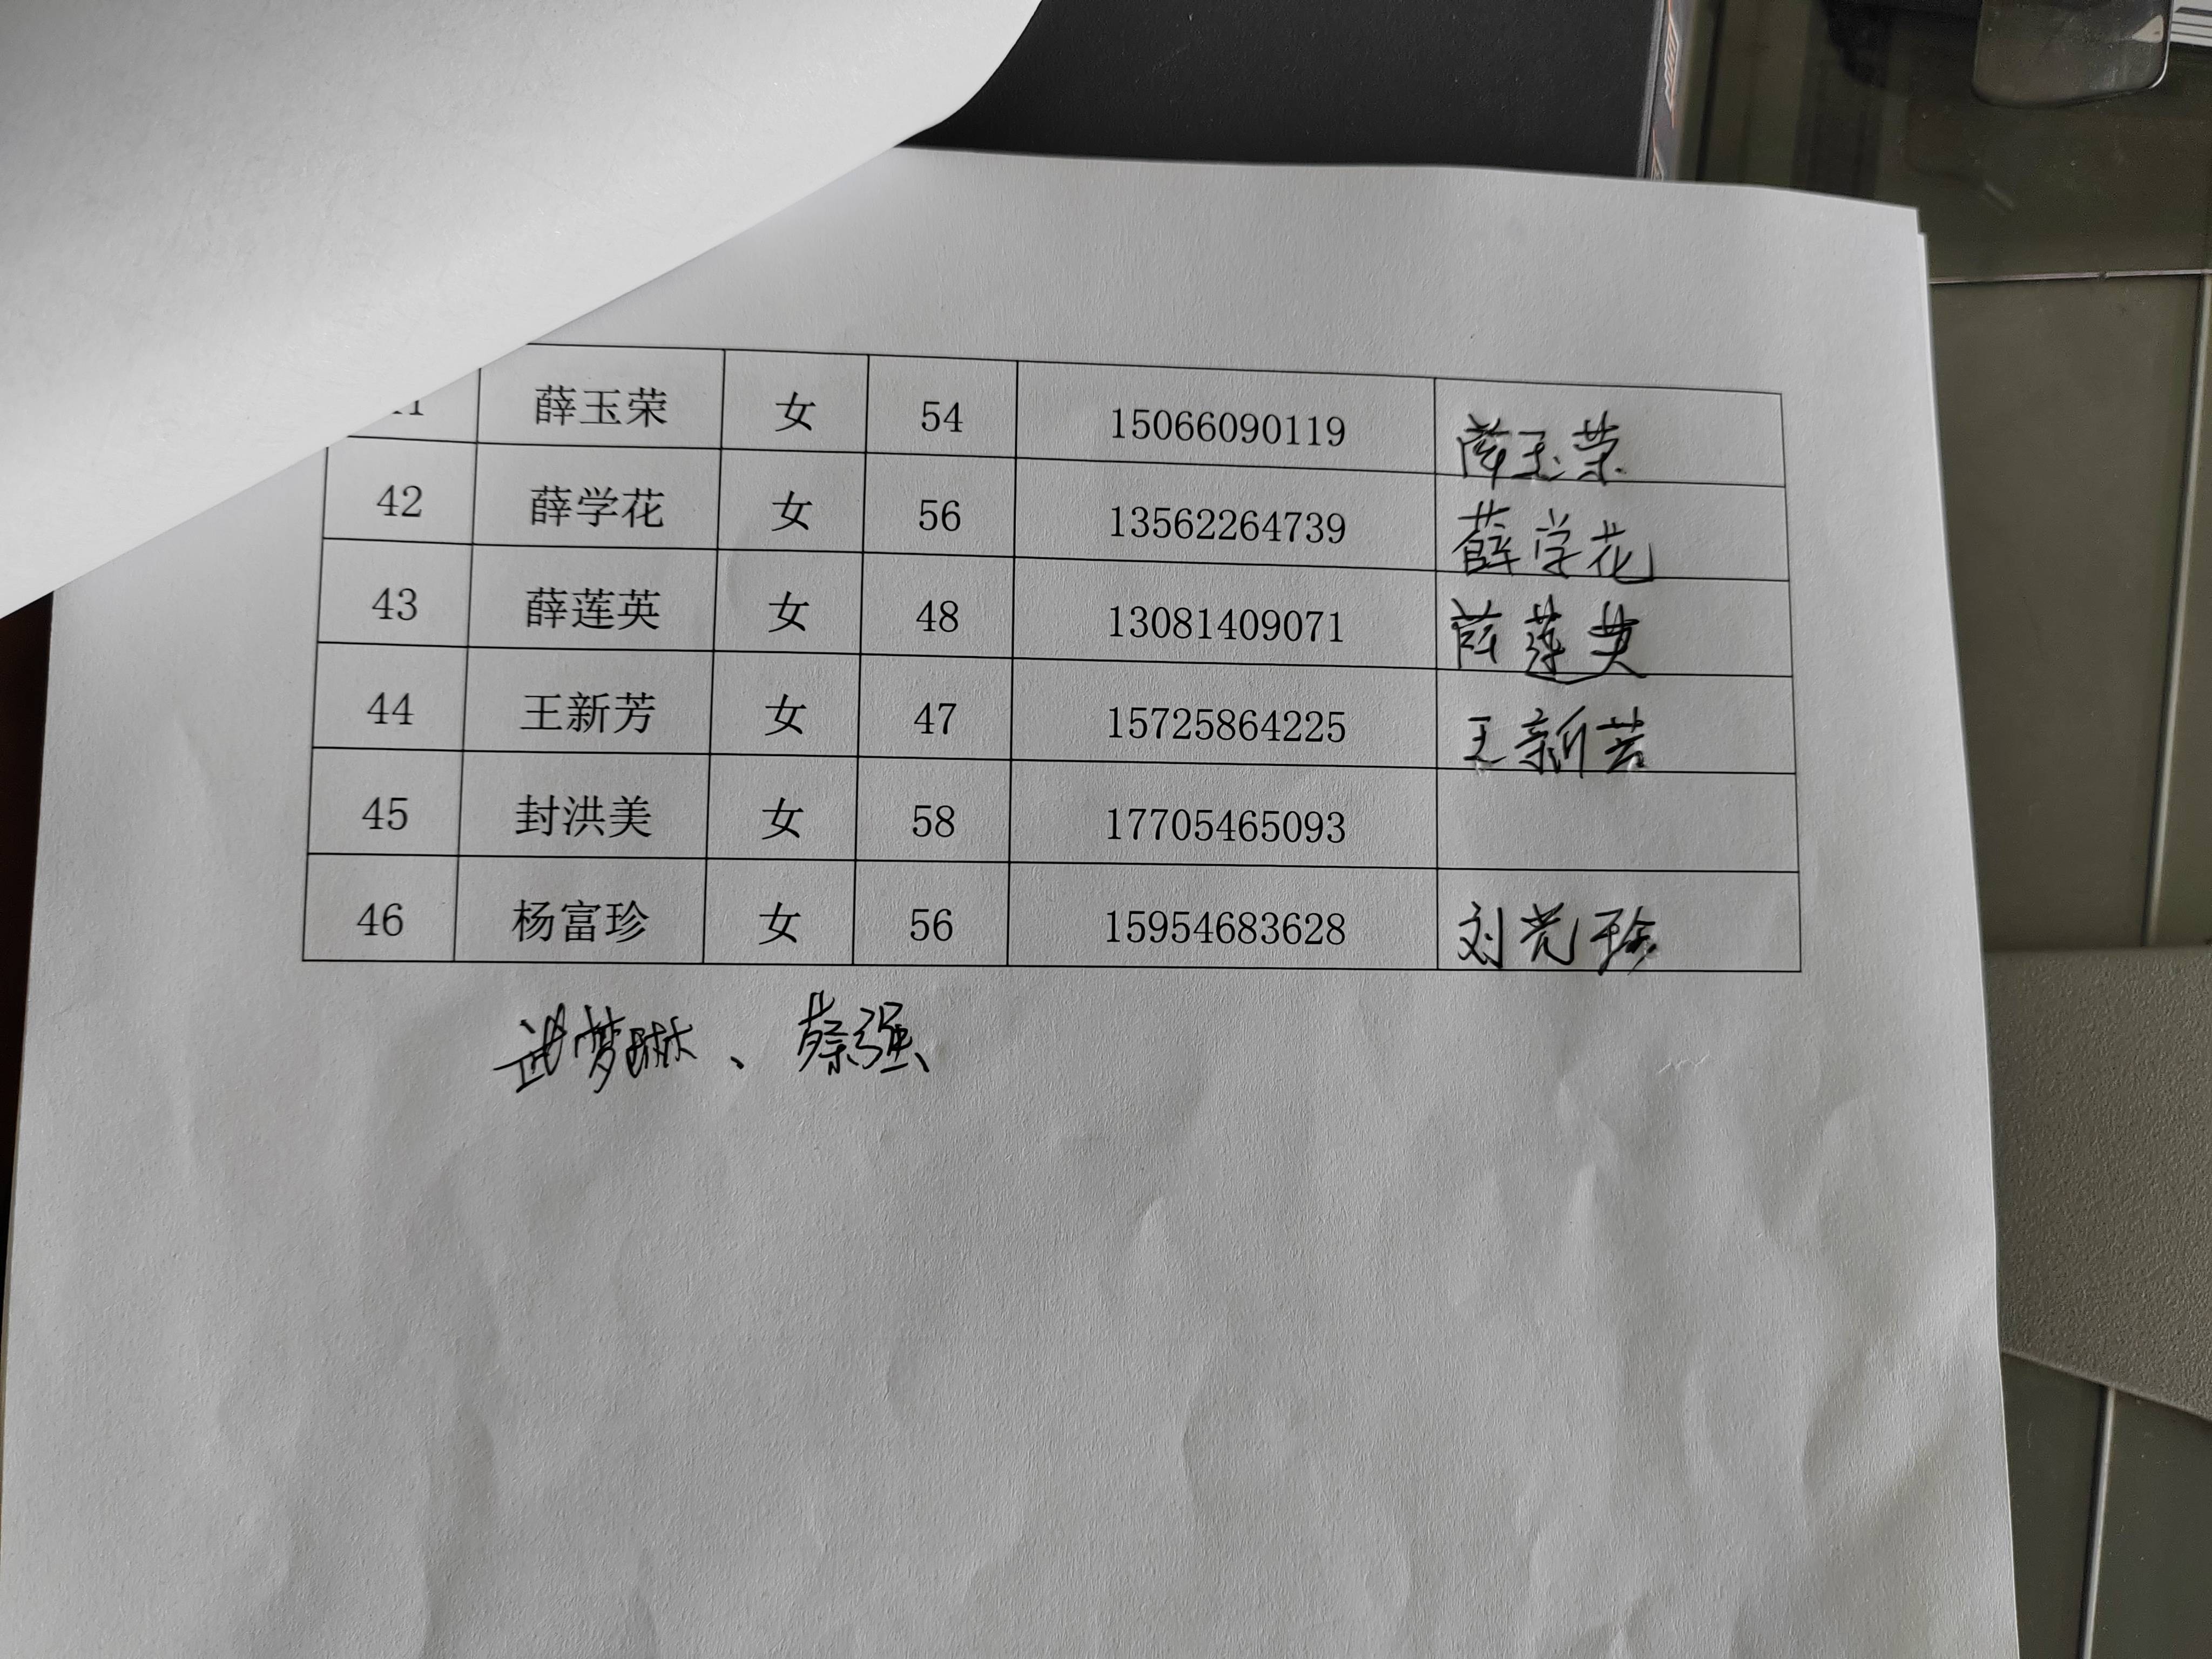 薛玉荣 女 54 15066090119 薛玉荣
42 薛学花 女 56 13562264739 薛学花
43 薛莲英 女 48 13081409071 薛莲英
44 王新芳 女 47 15725864225 王新芳
45 封洪美 女 58 17705465093
46 杨富珍 女 56 15954683628 刘
梦琳、蔡强